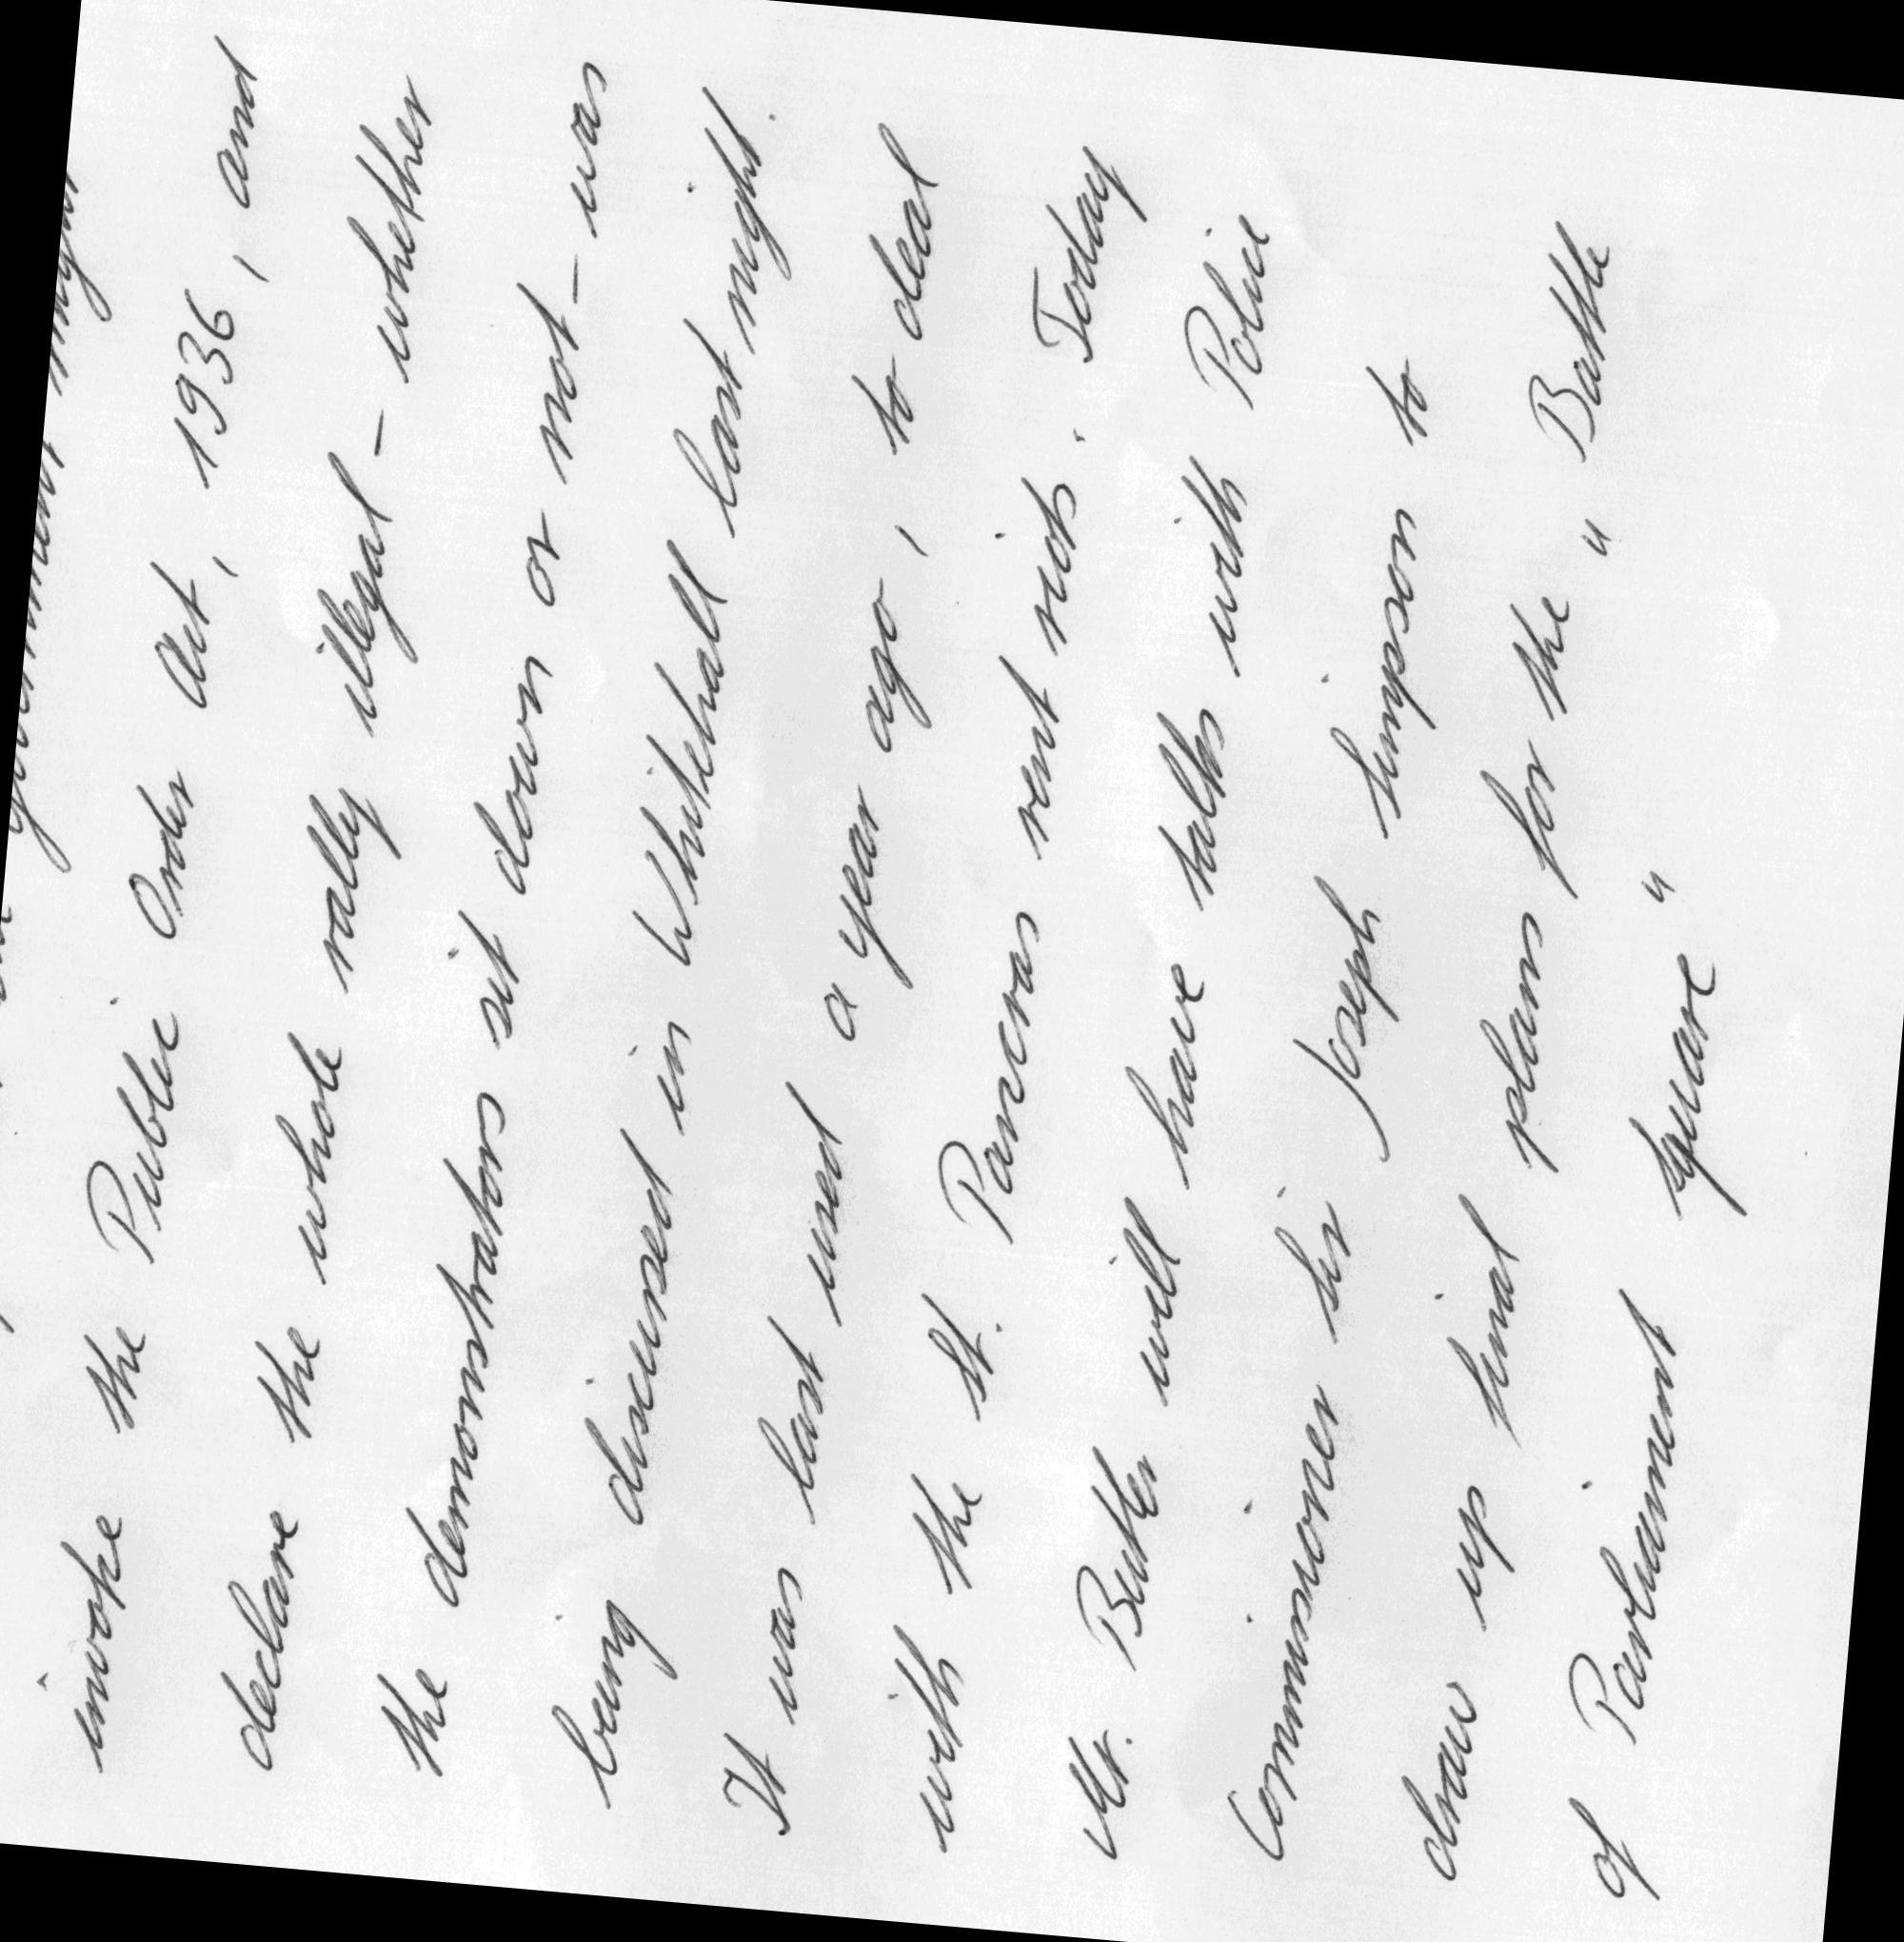 invoke the Public Order Act, 1936, and
declare the whole rally illegal - whether
the demonstrators sit down or not - was
being discussed in Whitehall last night.
It was last used a year ago, to deal
with the St. Pancras rent riots. Today
Mr. Butler will have talks with Police
Commissioner Sir Joseph Simpson to
draw up final plans for the "Battle
of Parliament Square"